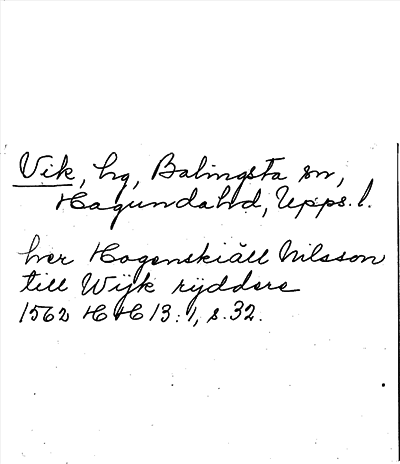 Vik, hg, Balingsta sn,
Hagunda hd, Upps. l.
her Hogenskiäll Nilsson
till Wijk rÿddere
1562 HH 13:1, s. 32.